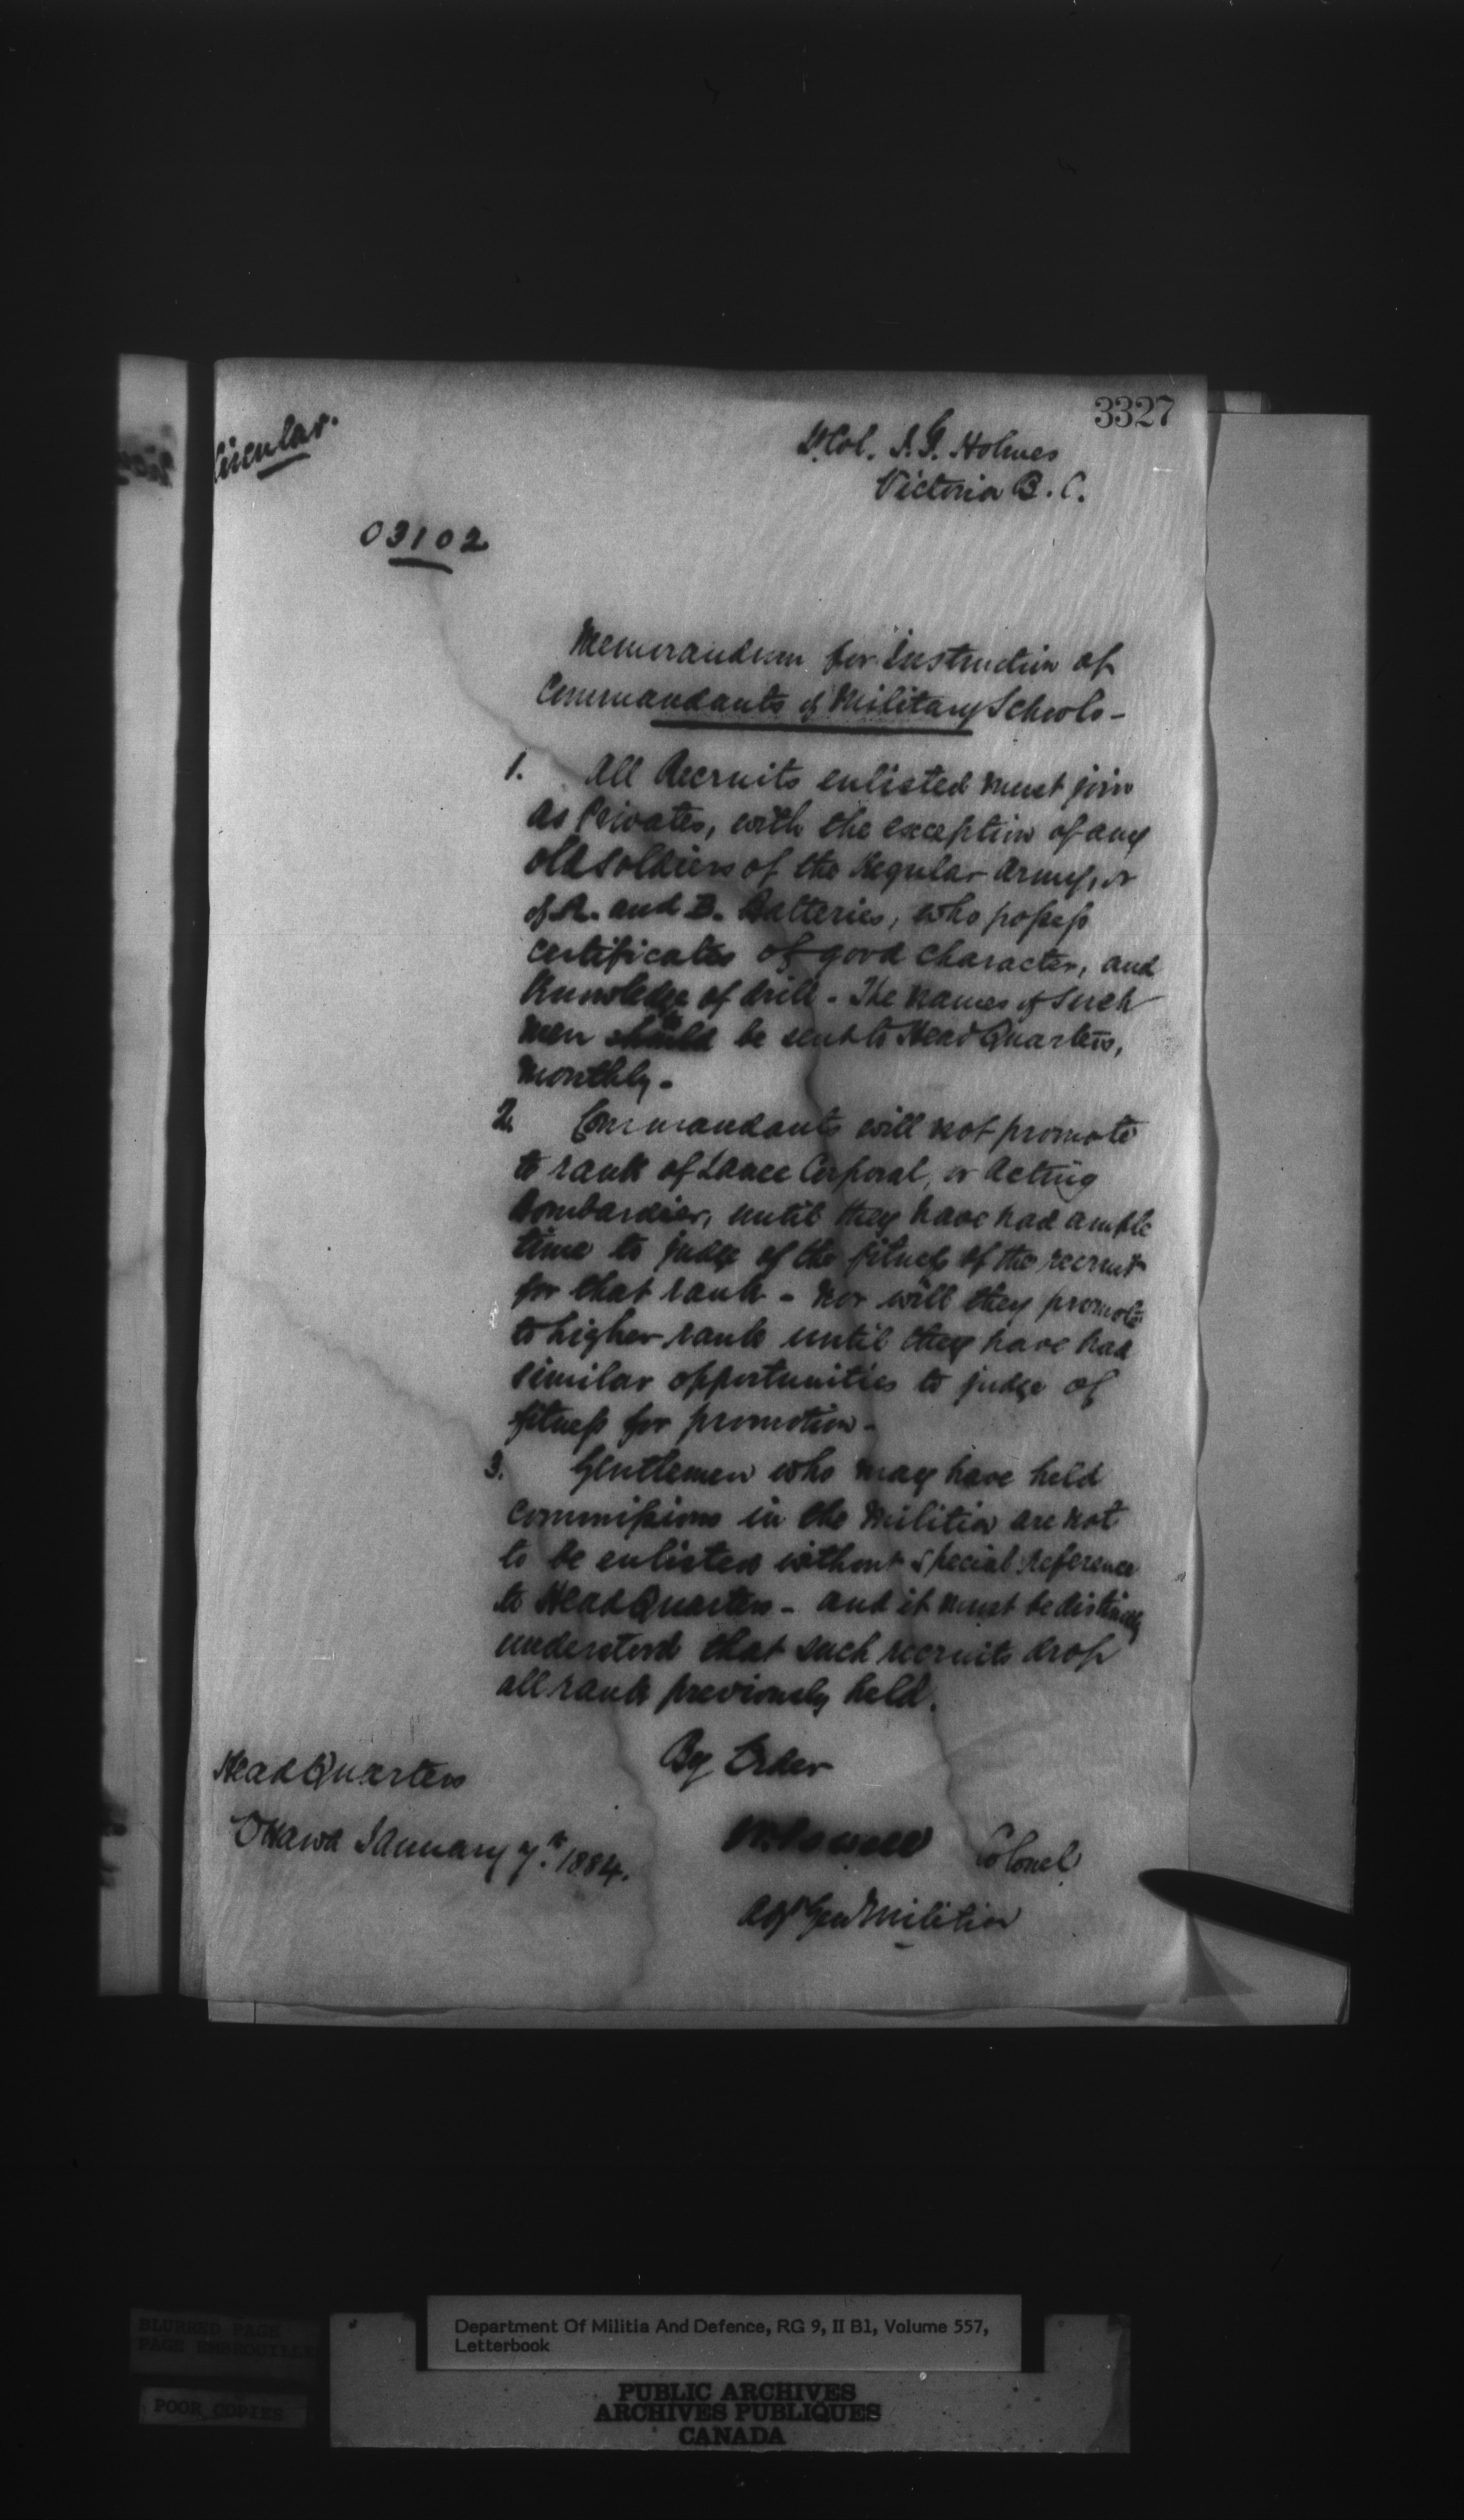 3327
Circular.
Lt Col. J. G. Holmes
Victoria B. C.
03102
Memorandum for Instruction of
Commandants of Military Schools -
1. All Recruits enlisted must join
as Privates, with the exception of any
old soldiers of the Regular Army, or
of A. and B. Batteries, who possess
certificates of good character, and
Knowledge of drill - The names of such
men be sent to Head Quarters,
monthly -
2. Commandants will not promote
to rank of Lance Corporal, or Acting
Bombardier, until they have had ample
time to judge of the fitness of the recruit
for that rank - nor will they promote
to higher rank until they have had
similar opportunities to judge of
fitness for promotion -
3. Gentlemen who may have held
commissions in the Militia are not
to be enlisted without special reference
to Head Quarters - and it must be distinctly
understood that such recruits drop
all rank previously held.
By Order
Head Quarters
Ottawa January 7th 1884.
W. Powell Colonel
Adjt Genl Militia
BLURRED PAGE
PAGE EMBROUILLEE
POOR COPIES
Department Of Militia And Defence, RG 9, II B1, Volume 557,
Letterbook
PUBLIC ARCHIVES
ARCHIVES PUBLIQUES
CANADA